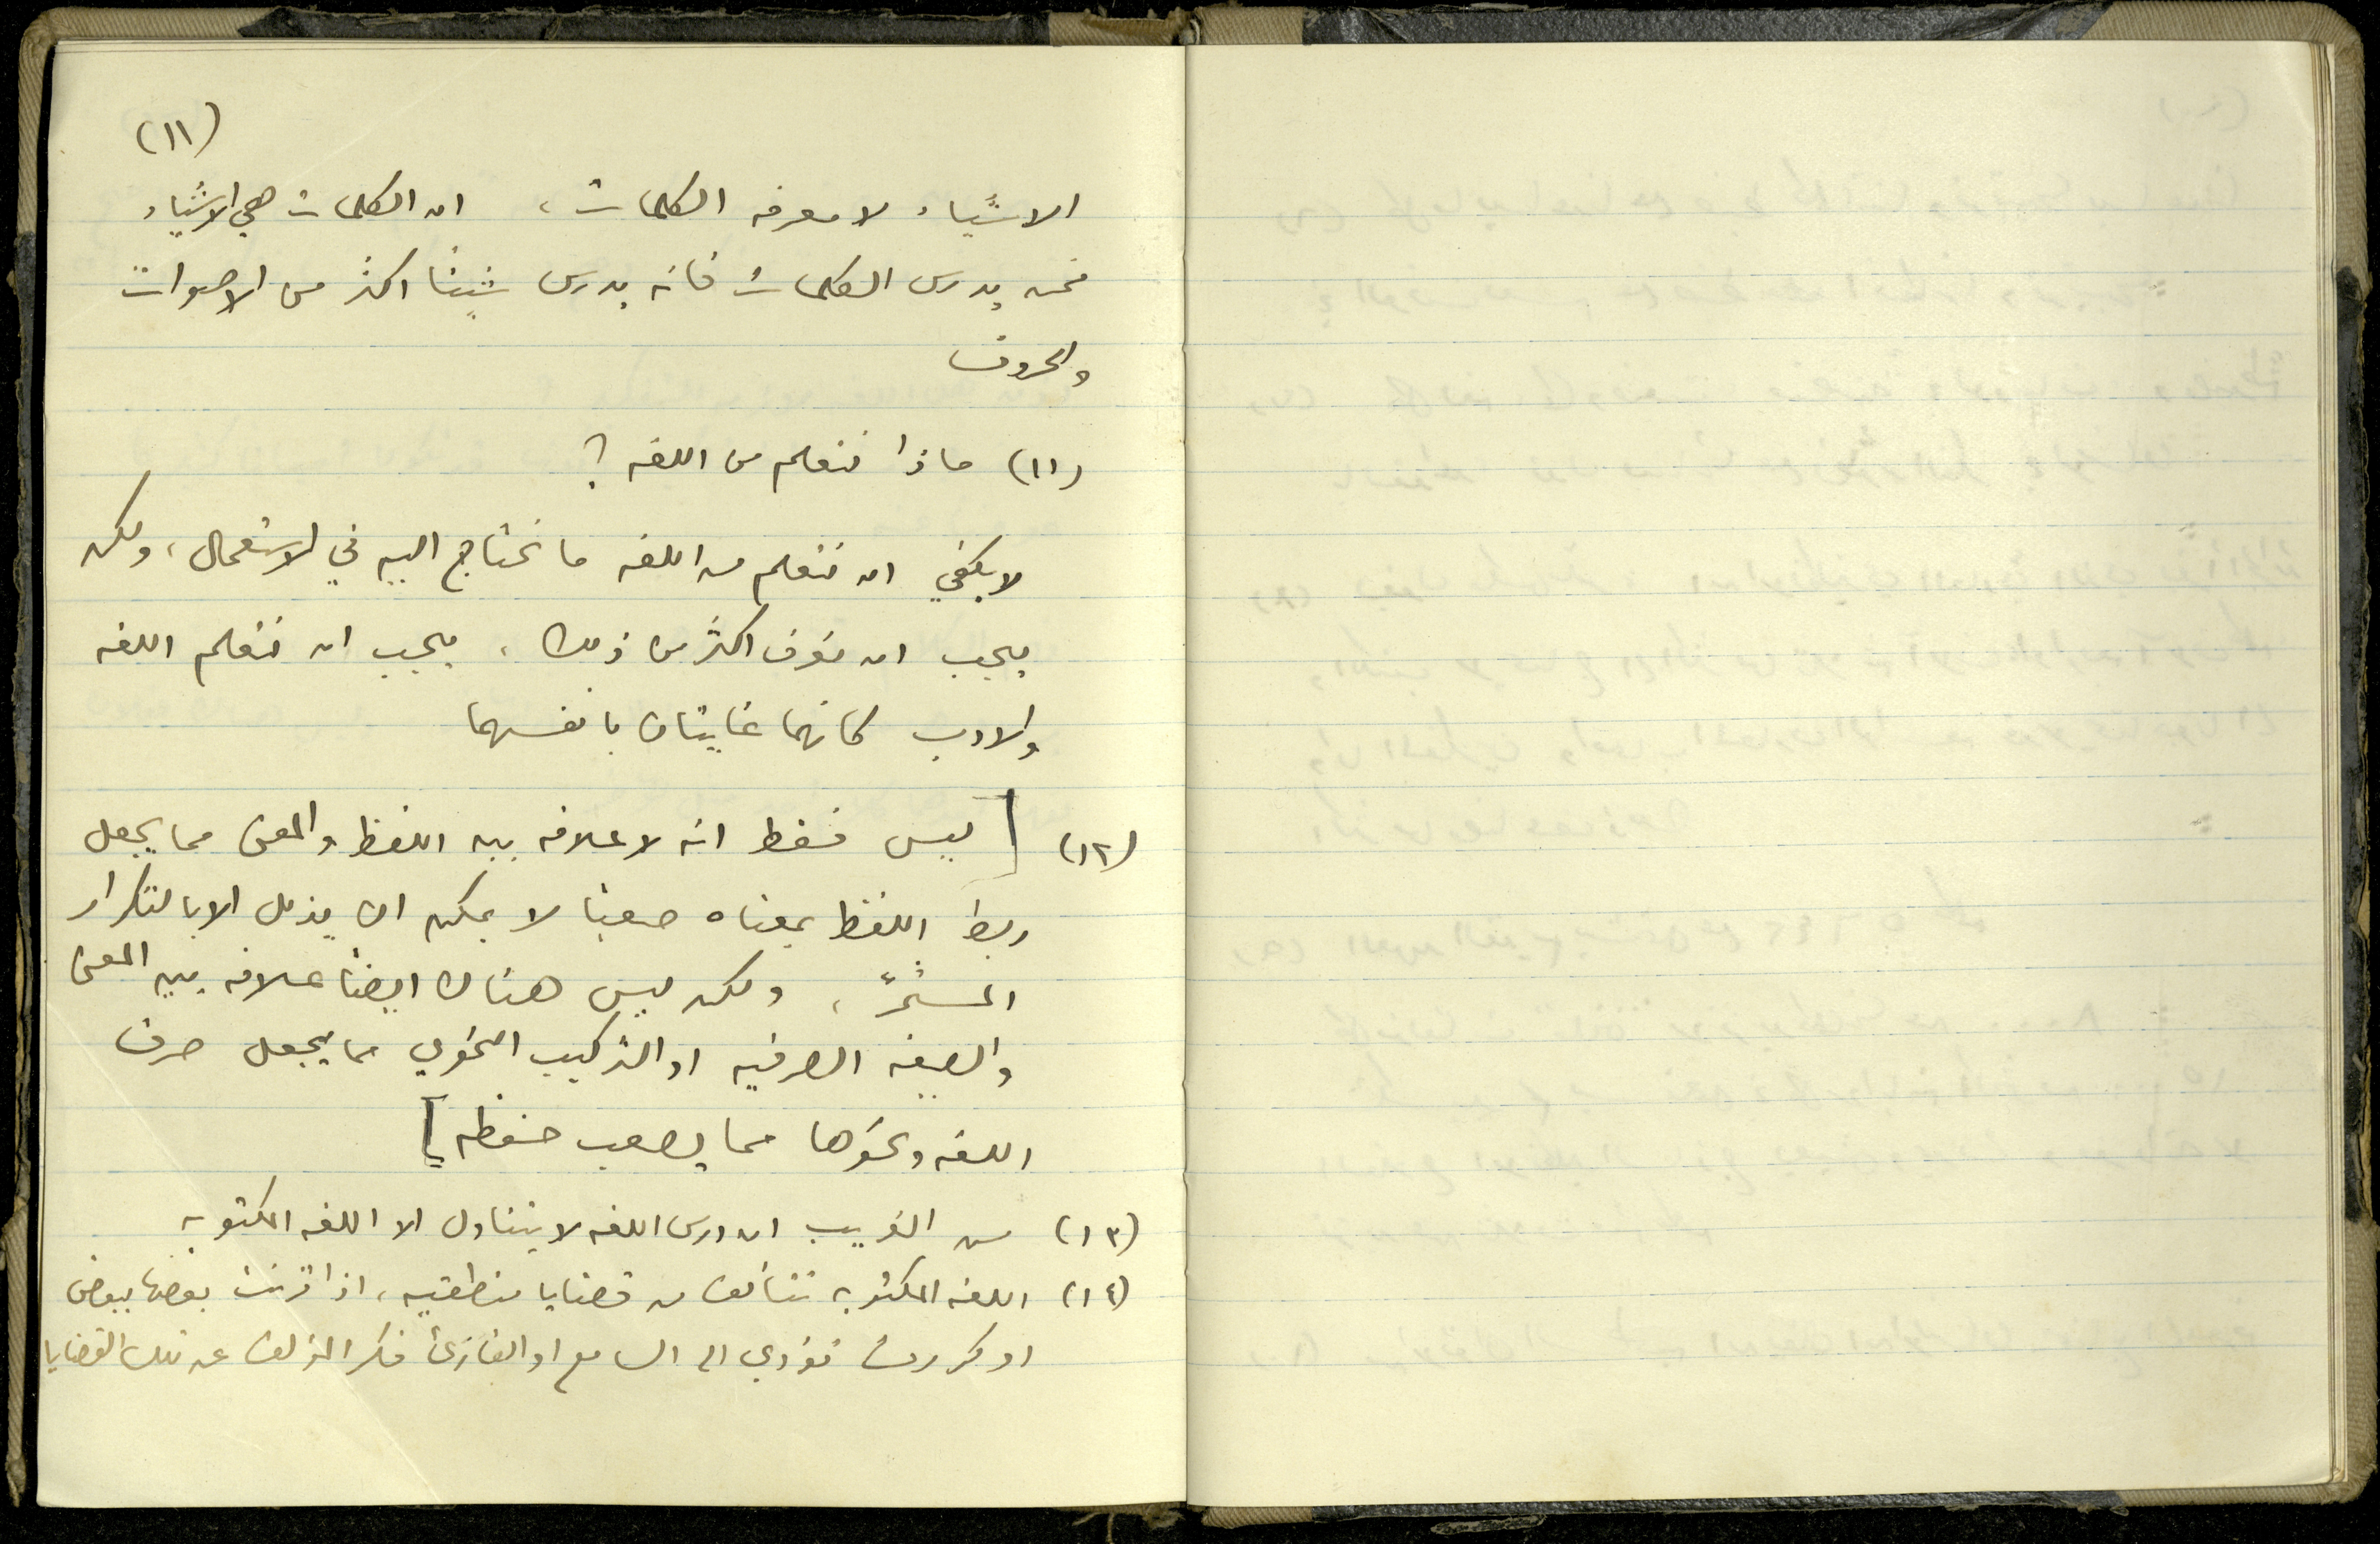 (١١)
الاشياء لا معرفه الكلمات، ان الكلمات هي الاشياء
فمن يدرس الكلمات فانه يدرس شيئا اكثر من الاصوات
والحروف
(١١) ماذا نتعلم من اللغه ؟
لا يكفي ان نتعلم من اللغه ما نحتاج اليه في الاستعمال، ولكن
يجب ان نعرف اكثر من ذلك، يجب ان نتعلم اللغه
والادب كانهما غايتان بانفسهما
(١٢) [ ليس فقط انه لا علاقه بين اللفظ والمعنى مما يجعل
ربط اللفظ بمعناه صعبا لا يمكن ان يذلل الا بالتكرار
المستمرّ، ولكن ليس هناك ايضا علاقه بين المعنى
والصيغه الصرفيه او التركيب النحوي مما يجعل صرف
اللغه ونحوها مما يصعب حفظه ]
(١٣) من الغريب ان درس اللغه لا يتناول الا اللغه المكتوبه
(١٤) اللغه المكتوبه تتألف من قضايا منطقيه، اذا قرنت بعضها ببعض
او كررت تؤدي الى السامع او القارئ فكر المؤلف عن تلك القضايا